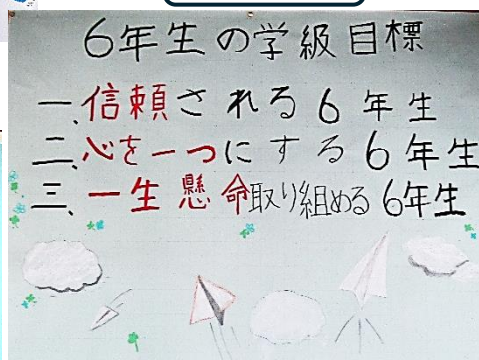 6年生の学級目標
一、信頼される6年生
二、心を一つにする6年生
三、一生懸命取り組める6年生